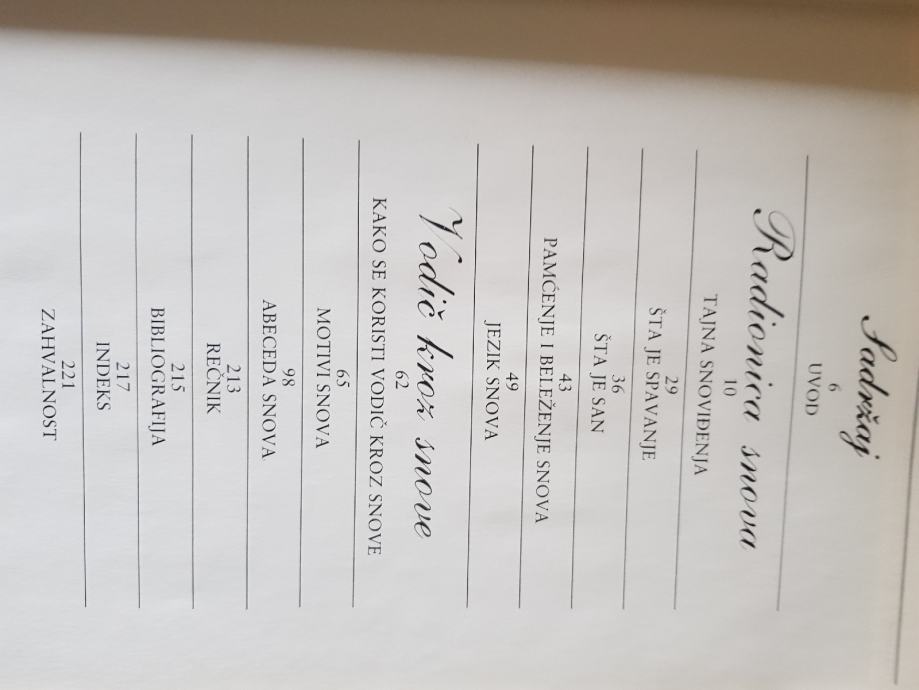 Sadržaj
6
UVOD
Radionica snova
10
TAJNA SNOVIĐENJA
29
ŠTA JE SPAVANJE
36
ŠTA JE SAN
43
PAMĆENJE I BELEŽENJE SNOVA
49
JEZIK SNOVA
Vodič kroz snove
62
KAKO SE KORISTI VODIČ KROZ SNOVE
65
MOTIVI SNOVA
98
ABECEDA SNOVA
213
REČNIK
215
BIBLIOGRAFIJA
217
INDEKS
221
ZAHVALNOST